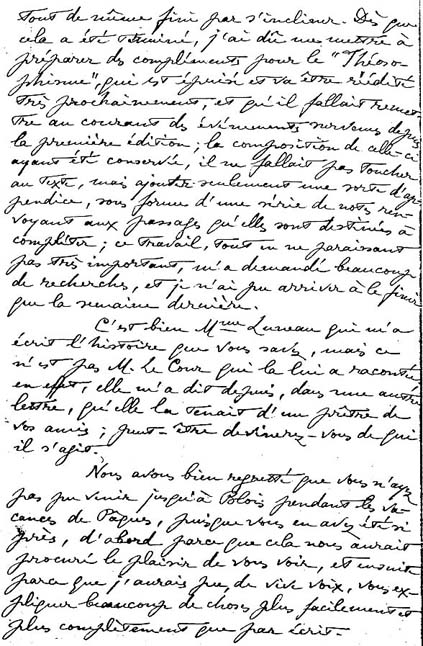 tout de même fini par s'incliner. Dès que
cela a été terminé, j'ai dû me mettre à
préparer des compléments pour le "Théoso-
phisme", qui est épuisé et va être réédité
très prochainement, et qu'il fallait remet-
tre au courant des événements survenus depuis
la première édition ; la composition de celle-ci
ayant été conservée, il ne fallait pas toucher
au texte, mais ajouter seulement une sorte d'ap-
pendice, sous forme d'une série de notes ren-
voyant aux passages qu'elles sont destinées à
compléter ; ce travail, tout en ne paraissant
pas très important, m'a demandé beaucoup
de recherches, et je n'ai pu arriver à le finir
que la semaine dernière.
C'est bien Mme Luneau qui m'a
écrit l'histoire que vous savez, mais ce
n'est pas M. Le Cour qui la lui a racontée
en effet, elle m'a dit depuis, dans une autre
lettre, qu'elle la tenait d'un prêtre de
vos amis ; peut-être devinerez-vous de qui
il s'agit.
Nous avons bien regretté que vous n'ayez
pas pu venir jusqu'à Blois pendant les va-
cances de Pâques, puisque vous en avez été si
près, d'abord parce que cela nous aurait
procuré le plaisir de vous voir, et ensuite
parce que j'aurais pu, de vive voix, vous ex-
pliquer beaucoup de choses plus facilement et
plus complètement que par écrit.